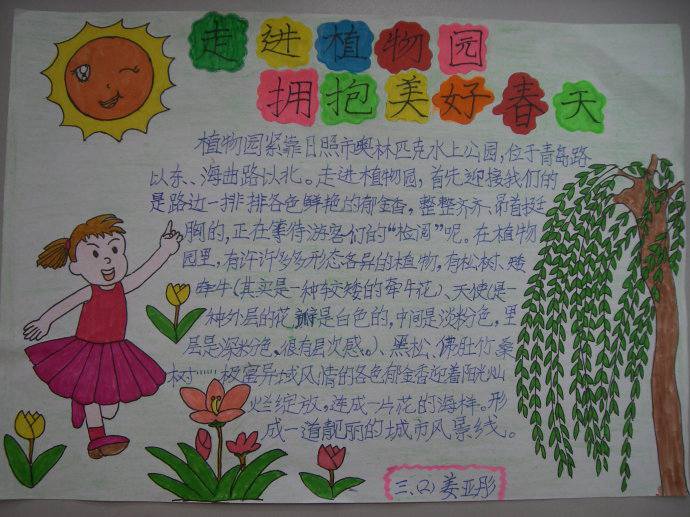 走进植物园
拥抱美好春天
植物园紧靠日照市奥林匹克水上公园,位于青岛路
以东、海曲路以北。走进植物园,首先迎接我们的
是路边一排排各色鲜艳的郁金香,整整齐齐、昂首挺
胸的,正在等待游客们的“检阅”呢。在植物
园里,有许许多多形态各异的植物,有松树、矮
牵牛(其实是一种较矮的牵牛花)、天使(是一
种外层的花瓣是白色的,中间是淡粉色,里
层是深粉色,很有层次感。)、黑松、佛肚竹、桑
树……极富异域风情的各色郁金香迎着阳光灿
烂绽放,连成一片花的海洋。形
成一道靓丽的城市风景线。
三、(2) 姜亚彤